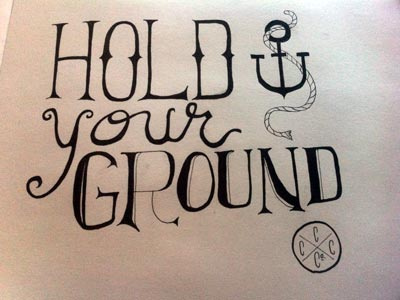 HOLD
your
GROUND
C
C C
Co.